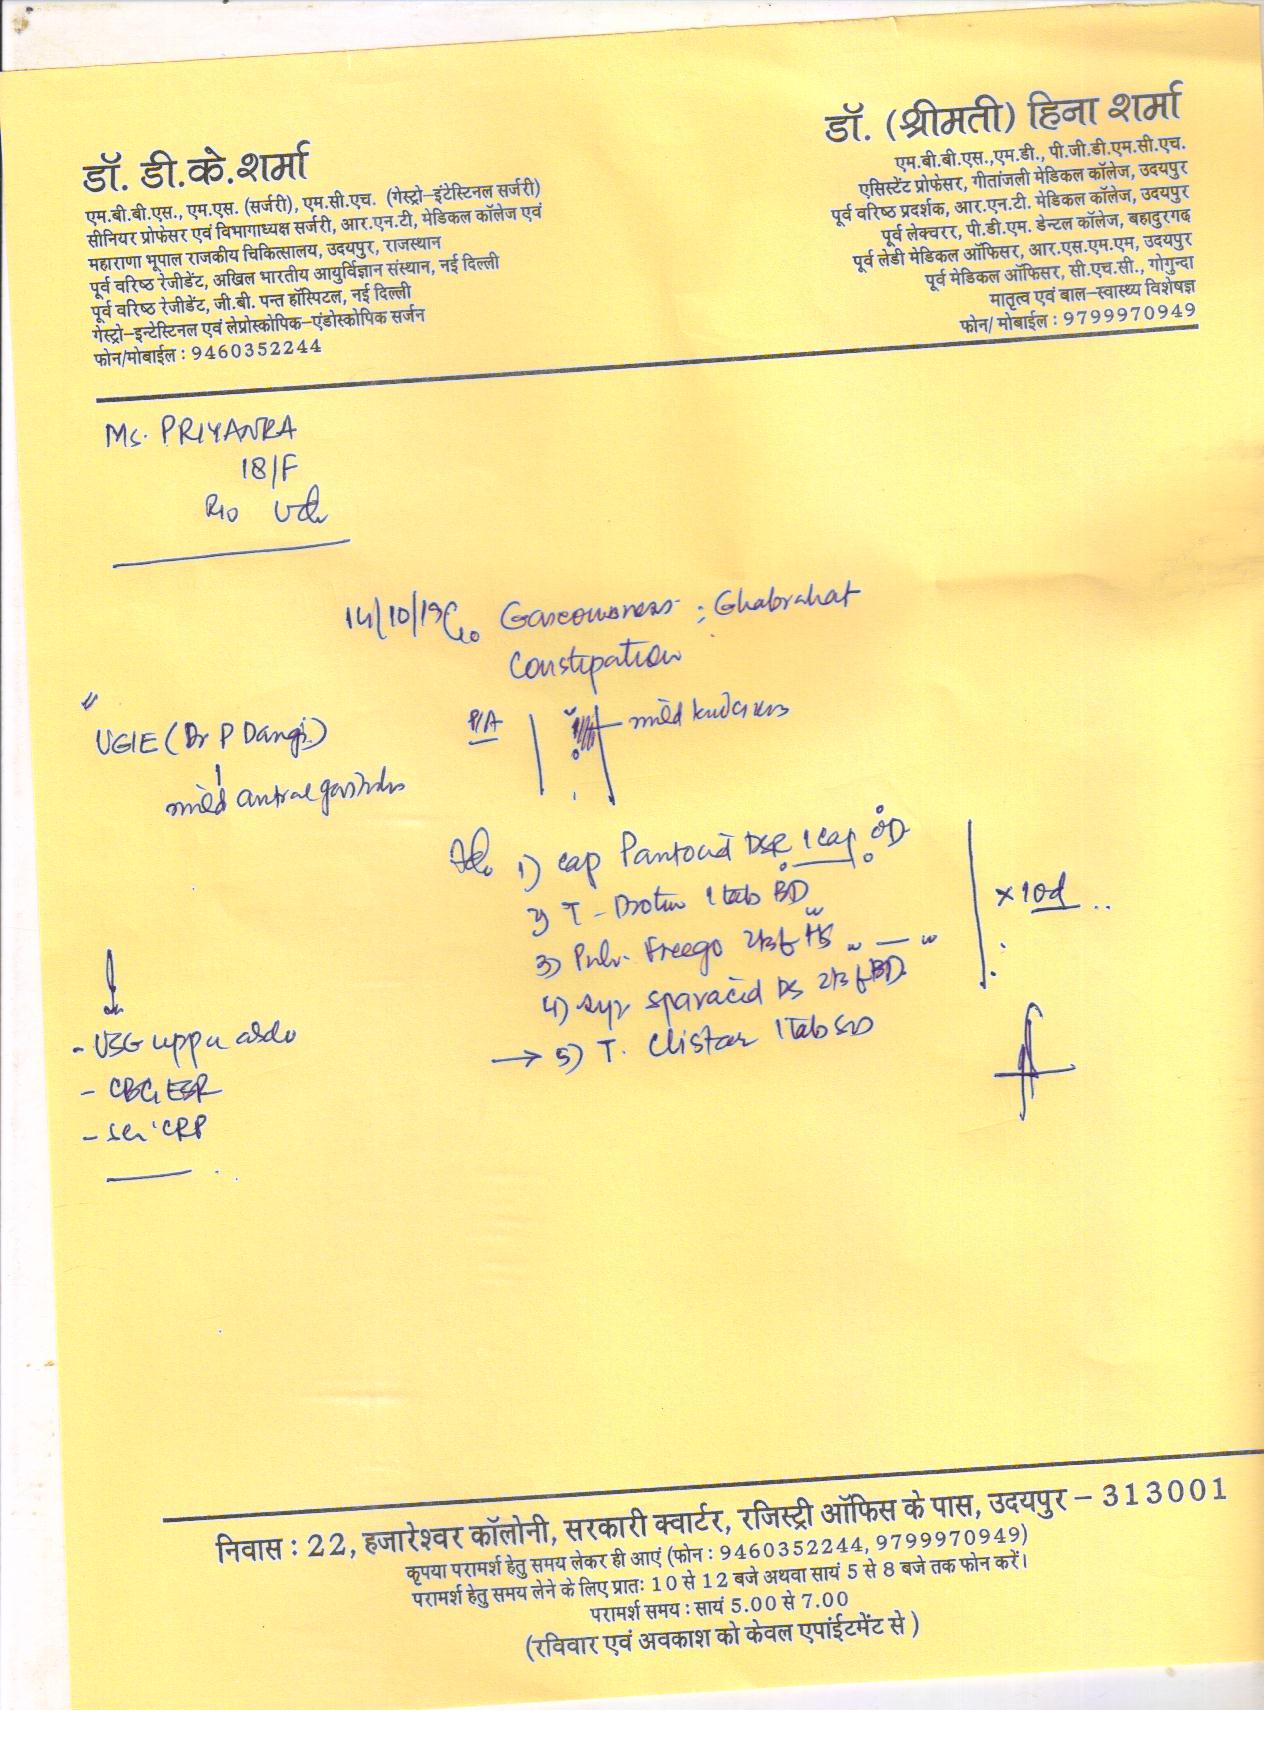 डॉ. डी.के.शर्मा
एम.बी.बी.एस., एम.एस. (सर्जरी), एम.सी.एच. (गेस्ट्रो–इंटेस्टिनल सर्जरी)
सीनियर प्रोफेसर एवं विभागाध्यक्ष सर्जरी, आर.एन.टी, मेडिकल कॉलेज एवं
महाराणा भूपाल राजकीय चिकित्सालय, उदयपुर, राजस्थान
पूर्व वरिष्ठ रेजीडेंट, अखिल भारतीय आयुर्विज्ञान संस्थान, नई दिल्ली
पूर्व वरिष्ठ रेजीडेंट, जी.बी. पन्त हॉस्पिटल, नई दिल्ली
गेस्ट्रो–इन्टेस्टिनल एवं लेप्रोस्कोपिक–एंडोस्कोपिक सर्जन
फोन/मोबाईल : 9460352244
डॉ. (श्रीमती) हिना शर्मा
एम.बी.बी.एस.,एम.डी., पी.जी.डी.एम.सी.एच.
एसिस्टेंट प्रोफेसर, गीतांजली मेडिकल कॉलेज, उदयपुर
पूर्व वरिष्ठ प्रदर्शक, आर.एन.टी. मेडिकल कॉलेज, उदयपुर
पूर्व लेक्चरर, पी.डी.एम. डेन्टल कॉलेज, बहादुरगढ़
पूर्व लेडी मेडिकल ऑफिसर, आर.एस.एम.एम, उदयपुर
पूर्व मेडिकल ऑफिसर, सी.एच.सी., गोगुन्दा
मातृत्व एवं बाल–स्वास्थ्य विशेषज्ञ
फोन/ मोबाईल : 9799970949
Ms. PRIYANKA
18/F
R/o Ud
14/10/19 C/o Gaseousness ; Ghabrahat
Constipation
UGIE (Dr P Dangi)
mild antral gastritis
P/A mild
Adv 1) cap Pantocid DSR 1 cap OD
2) T - 1 tab BD
3) Pulv. Freego HS
4) syp sparacid DS BD
→ 5) T. Clistar 1 Tab
× 10d
- USG upper abdo
- CBC, ESR
- Ser CRP
निवास : 22, हजारेश्वर कॉलोनी, सरकारी क्वार्टर, रजिस्ट्री ऑफिस के पास, उदयपुर – 313001
कृपया परामर्श हेतु समय लेकर ही आएं (फोन : 9460352244, 9799970949)
परामर्श हेतु समय लेने के लिए प्रातः 10 से 12 बजे अथवा सायं 5 से 8 बजे तक फोन करें।
परामर्श समय : सायं 5.00 से 7.00
(रविवार एवं अवकाश को केवल एपांईटमेंट से )